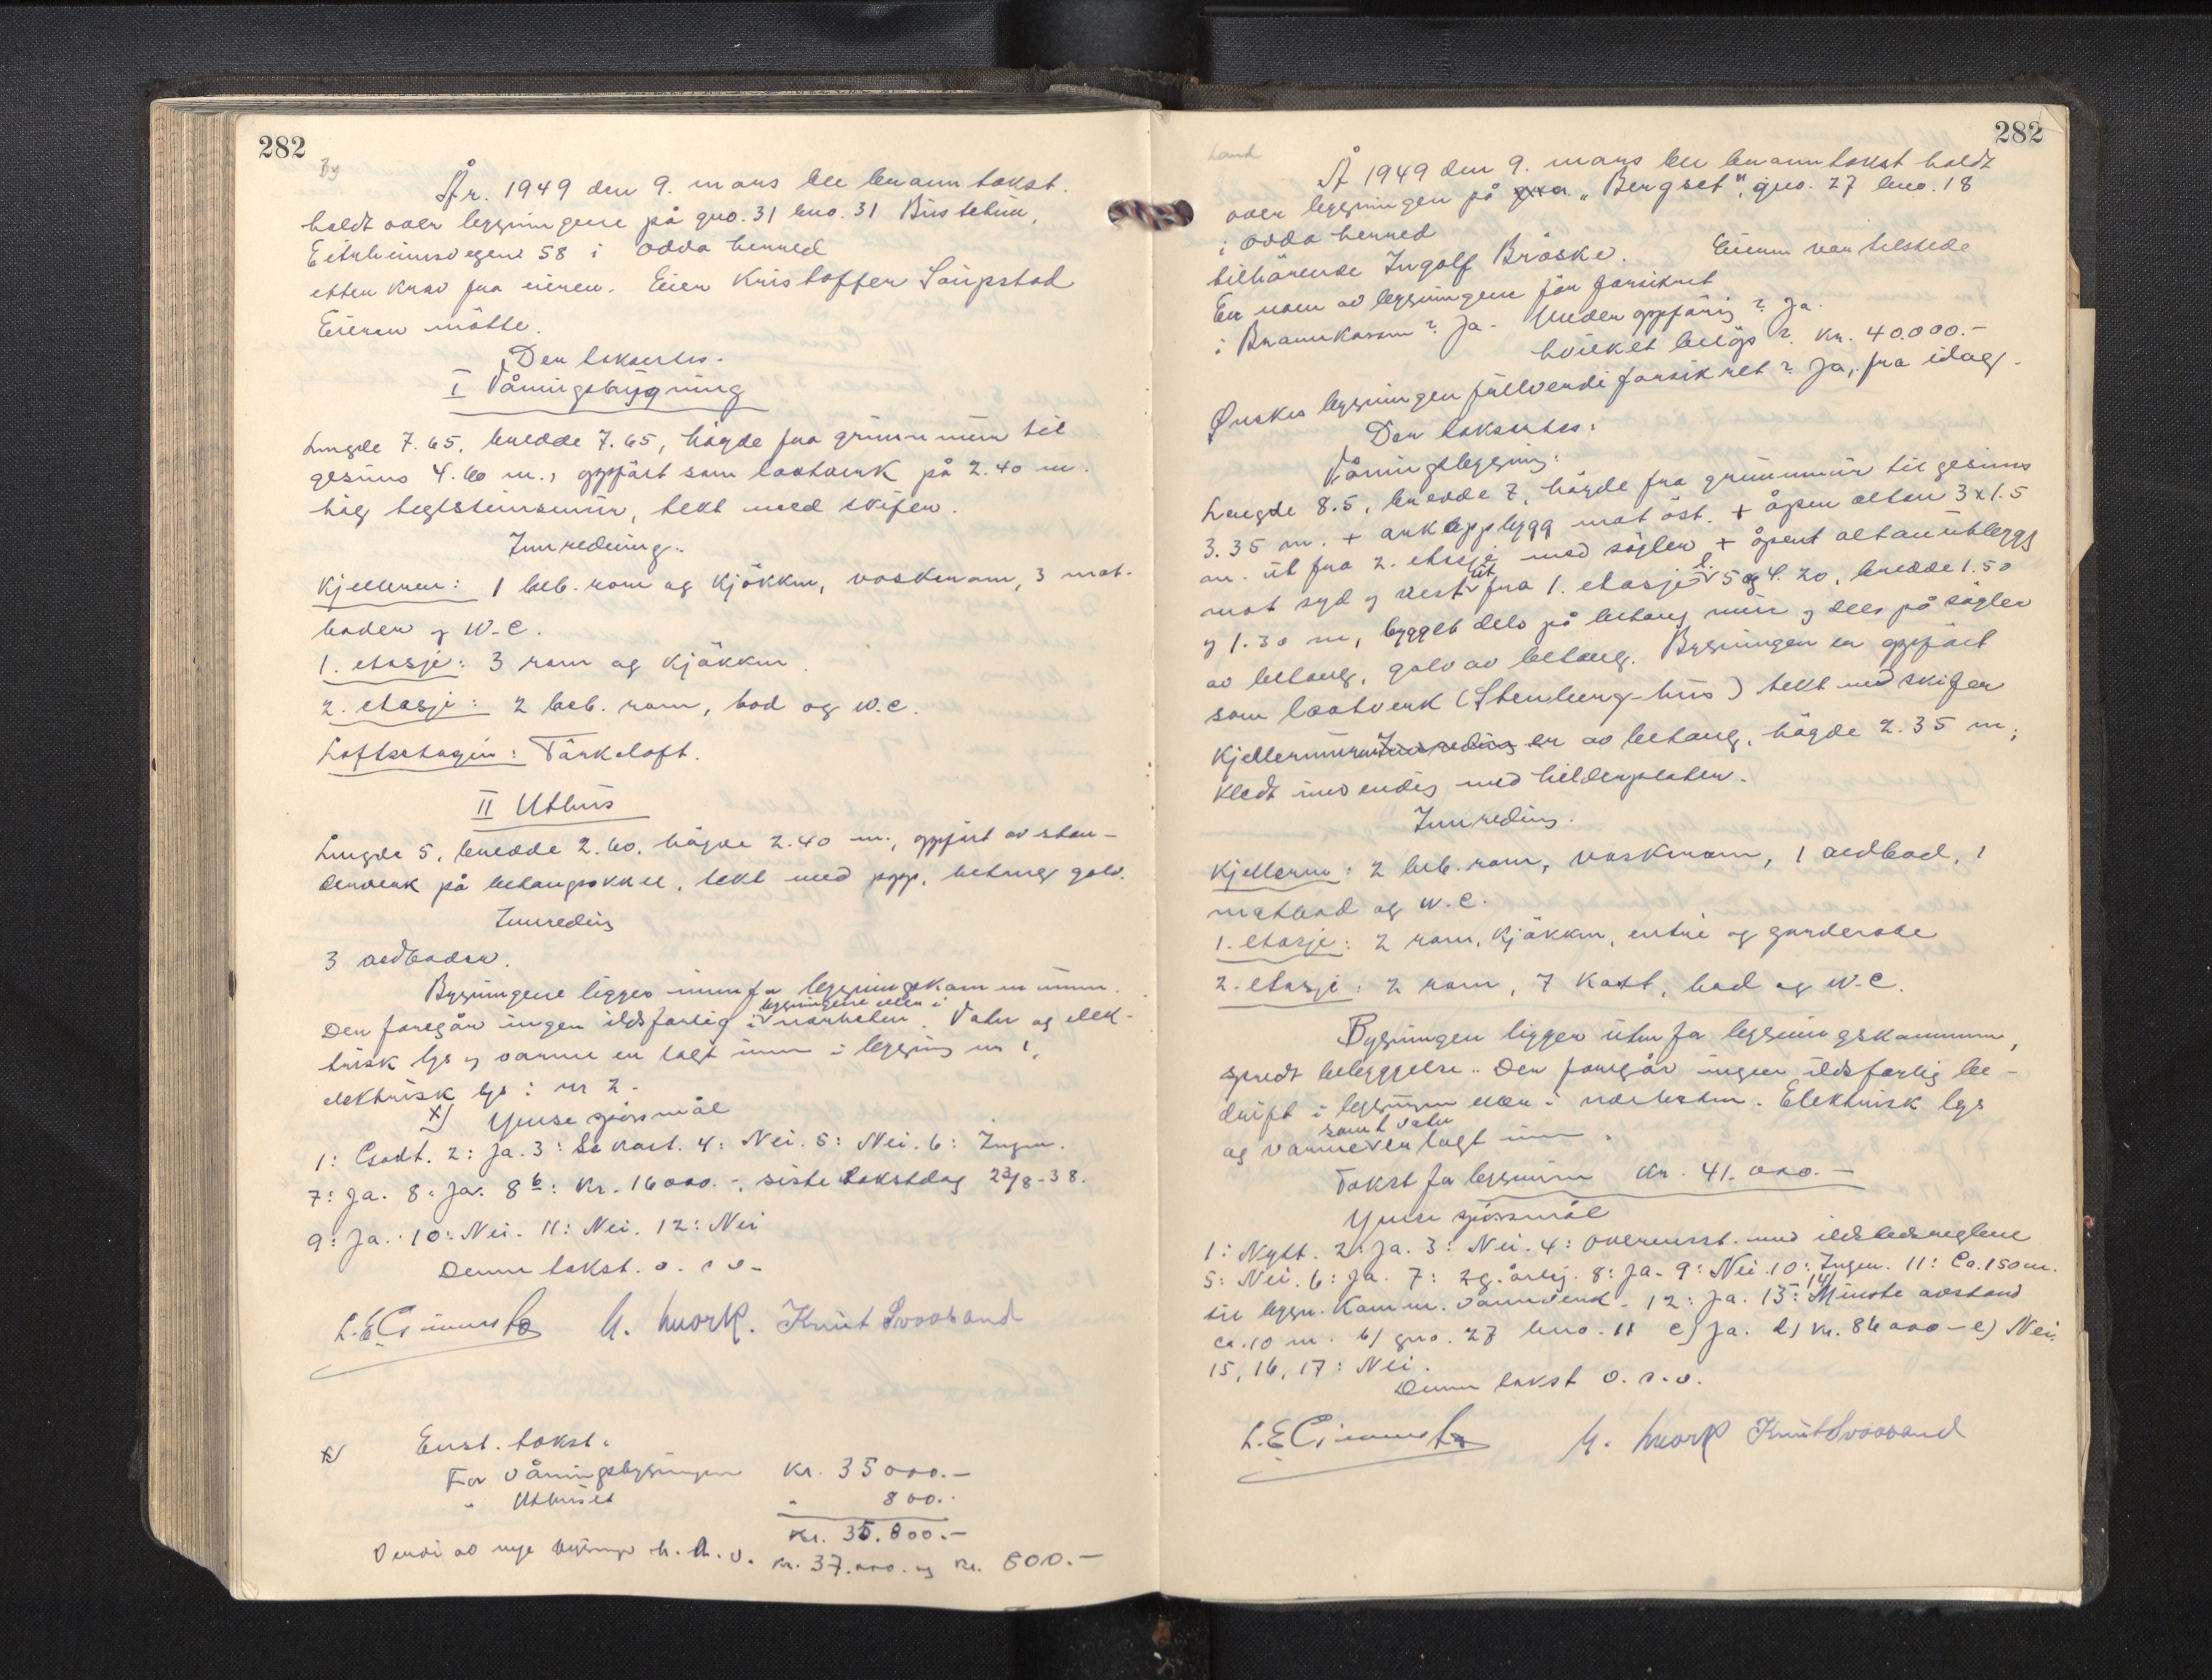 282
By
År. 1949 den 9. mars ble branntakst
holdt over bygningene på gno. 31 bno. 31 Bustetun,
Eitrheimsvegen 58 i Odda herred
etter krav fra eieren. Eier Kristoffer Saupstad
Eieren møtte.
Der takseres.
I Våningsbygning
Lengde 7.65, bredde 7.65, høgde fra grunnmur til
gesims 4.60 m., oppført som laftverk på 2.40 m.
høg teglsteinsmur, tekt med skifer.
Innredning.
Kjelleren: 1 beb. rom og kjøkken, vaskerom, 3 mat-
boder og W.C.
1. etasje: 3 rom og kjøkken.
2. etasje: 2 beb. rom, bad og W.C.
Loftsetagen: Tørkeloft.
II Uthus
Lengde 5, bredde 2.60, høgde 2.40 m., oppført av sten-
derverk på betongsokkel, tekt med papp, betong golv.
Innreding
3 vedboder.
Bygningene ligger innenfor bygningskommunen.
Der foregår ingen ildsfarlig i bygningene eller i nærheten. Vatn og elek-
trisk lys og varme er lagt inn i bygning nr 1,
elektrisk lys i nr 2.
x) Ymse spørsmål
1: Godt. 2: Ja. 3: Se kart. 4: Nei. 5: Nei. 6: Ingen.
7: Ja. 8: Ja. 8 b: Kr. 16000.-, siste takstdag 23/8-38.
9: Ja. 10: Nei. 11: Nei. 12: Nei
Denne takst. o. s v.
L. E. M. Mork. Knut Svoosand
x) Enst. takst.
For våningsbygningen Kr. 35000.-
" Uthuset " 800.-
Kr. 35.800.-
Verdi av nye bygninger h. h. v. Kr. 37.000. og kr. 800.-
282
Land
År 1949 den 9. mars ble branntakst holdt
over bygningen på "Bergset", gno. 27 bno. 18
i Odda herred
tilhørende Ingolf Bråske. Eieren var tilstede
Er noen av bygningene før forsikret
i Brannkassen? Ja. Under oppføring? Ja.
hvilket beløp? Kr. 40.000.-
Ønskes bygningen fullverdiforsikret? Ja, fra idag.
Der takseres:
Våningsbygning:
Lengde 8.5, bredde 7, høgde fra grunnmur til gesims
3.35 m. + arkoppbygg mot öst. + åpen altan 3x1.5
m. ut fra 2. etasje med söyler + åpent altanutbygg
mot syd og vest ut fra 1. etasje l. 5 og 4.20, bredde 1.50
og 1.30 m, bygget dels på betong mur og dels på søyler
av betong, golv av betong. Bygningen er oppført
som laftverk (Stenberg-hus) tekt med skifer
Kjellermuren er av betong, høgde 2.35 m,
kledt innvendig med hilderplater.
Innreding.
Kjelleren: 2 beb. rom, vaskerom, 1 vedbod, 1
matbod og W.C.
1. etasje: 2 rom, kjøkken, entré og garderobe
2. etasje: 2 rom, 7 kott, bad og W.C.
Bygningen ligger utenfor bygningskommunen,
spredt bebyggelse. Der foregår ingen ildsfarlig be-
drift i bygningen eller i nærheten. Elektrisk lys
og varme samt vatn er lagt inn.
Takst for bygningen Kr. 41.000.-
Ymse spørsmål
1: Nytt. 2: Ja. 3: Nei. 4: Overensst. med ildstedsreglene
5: Nei. 6: Ja. 7: 2 g. årlig. 8: Ja. 9: Nei. 10: Ingen. 11: Ca. 150 m.
til bygn. komm. vannverk. 12: Ja. 13: 14) Minste avstand
ca. 10 m. b) gno. 27 bno. 11 c) Ja. d) Kr. 86000- e) Nei.
15, 16, 17: Nei.
Denne takst o. s. v.
L. E. M. Mork Knut Svoosand